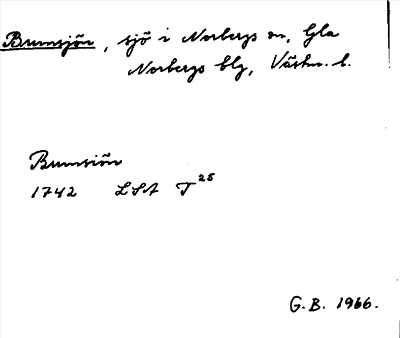 Brumsjön, sjö i Norbergs sn, Gla
Norbergs blg, Västm. l.
Brumsiön
1742 LSA T 25
G.B. 1966.